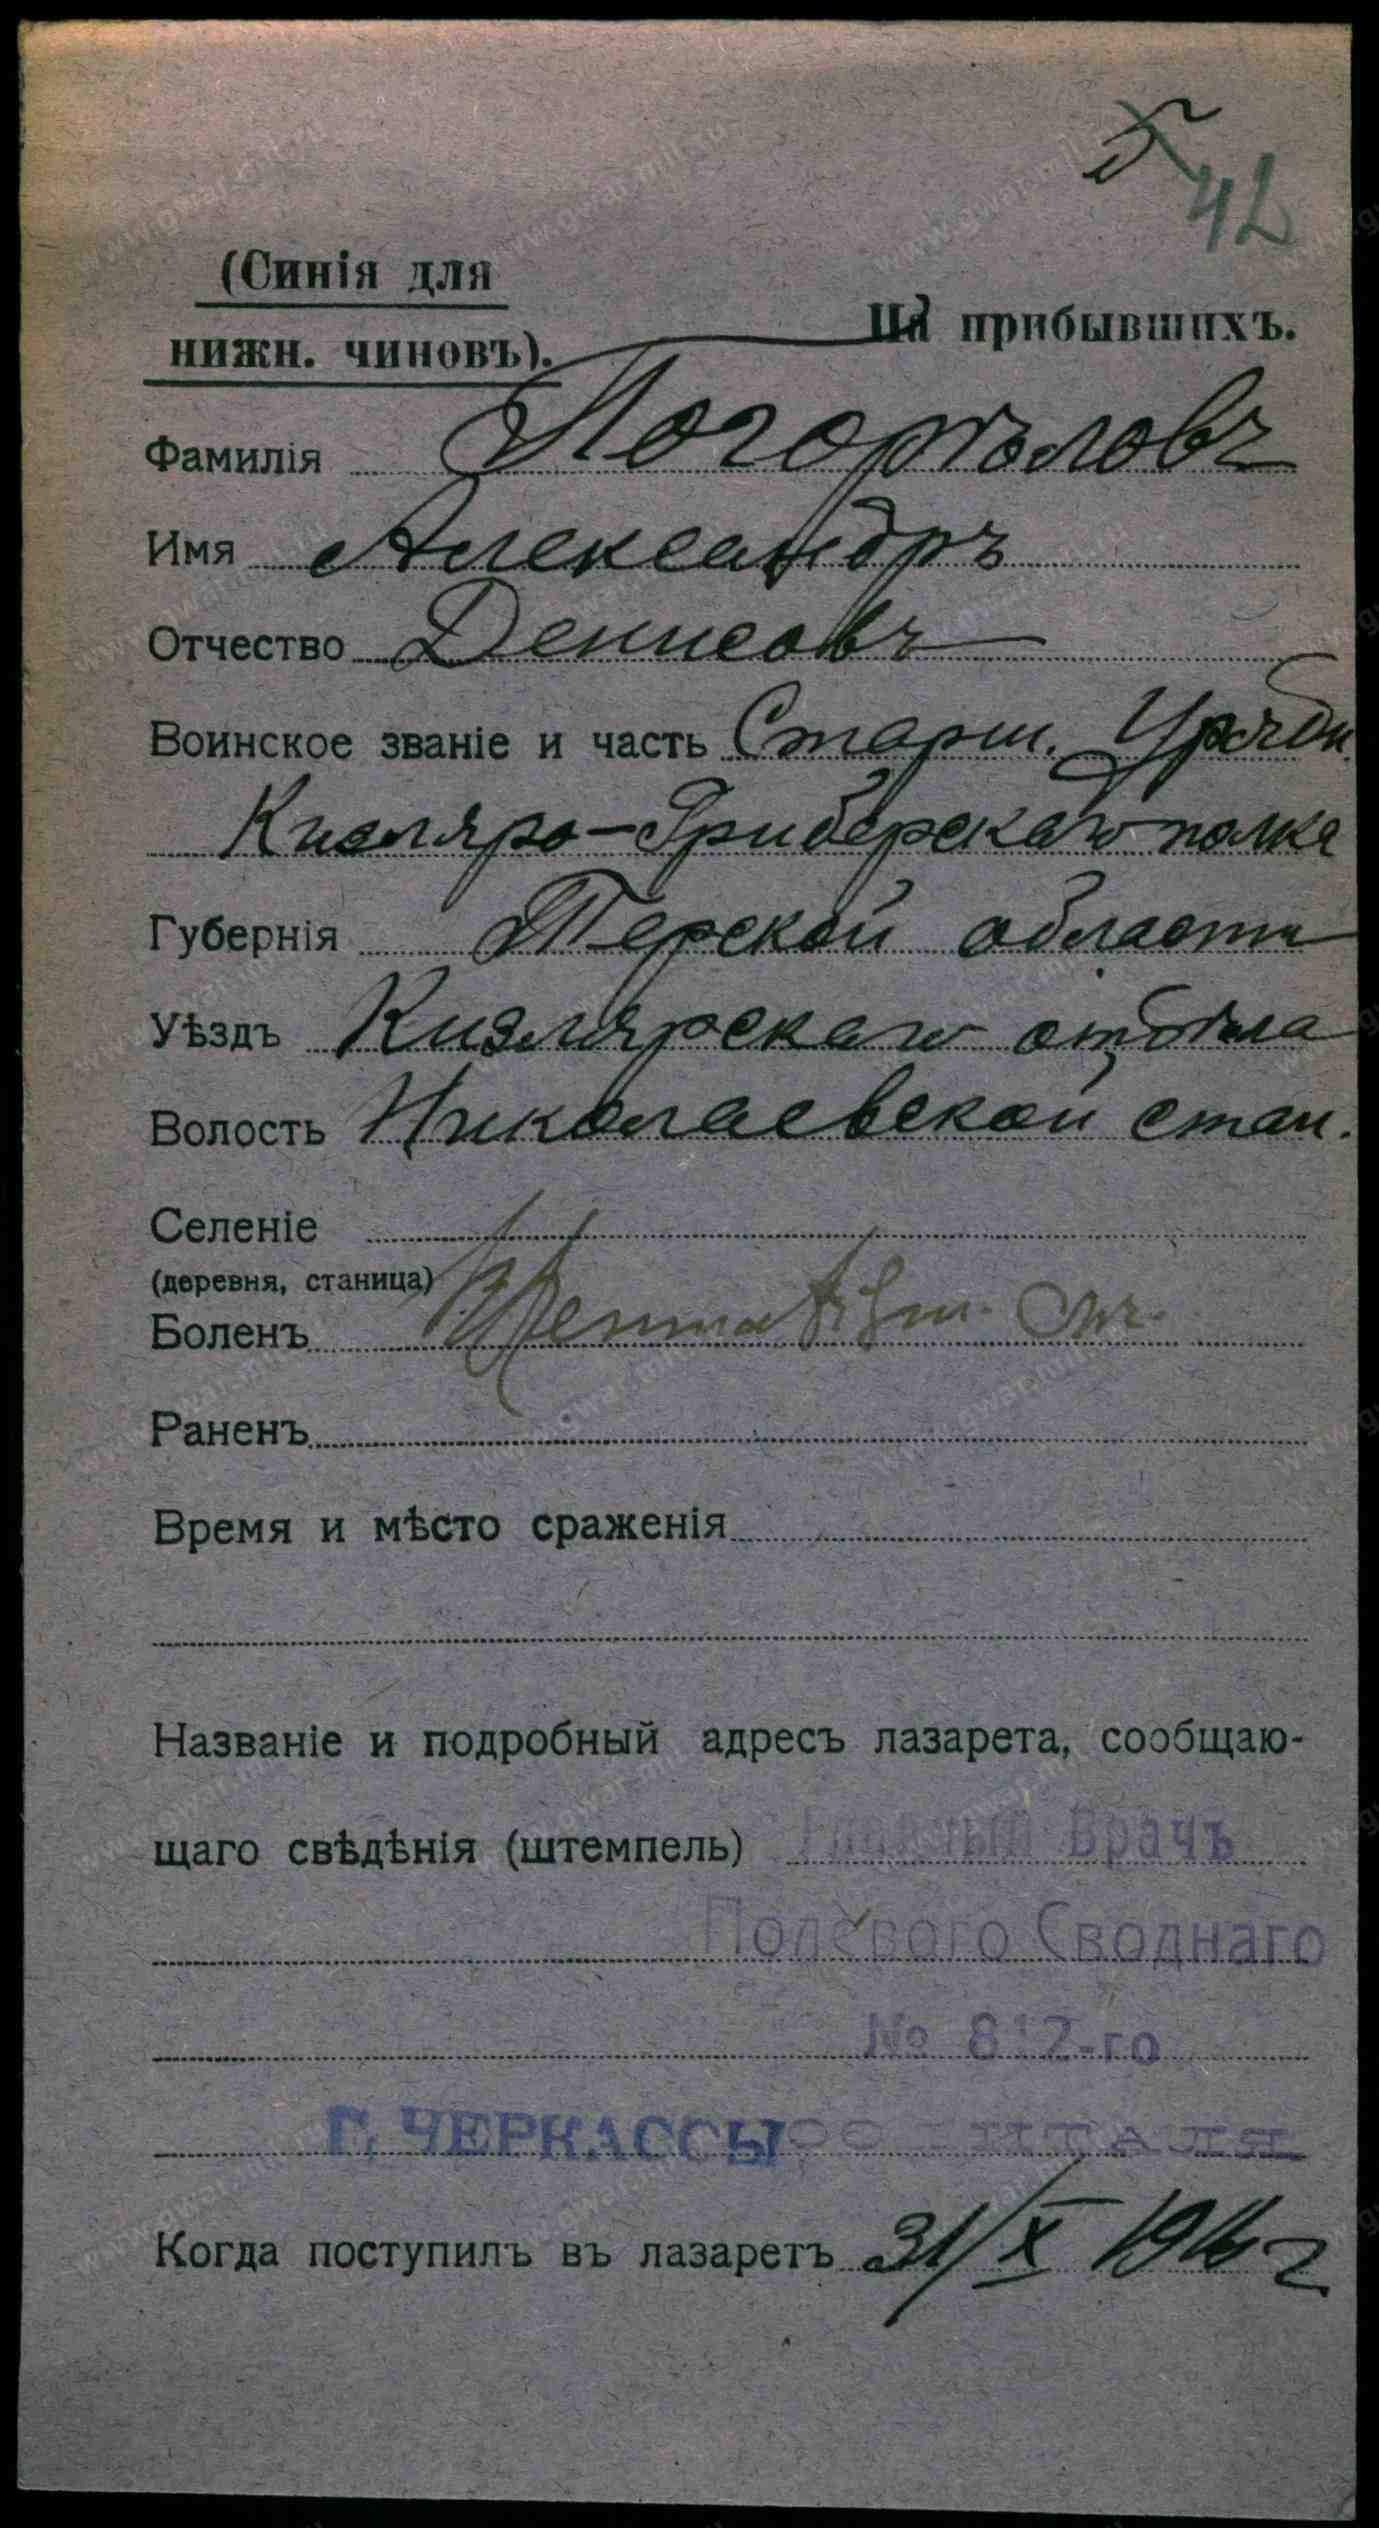 42
(Синія для
На прибывшихъ.
нижн. чиновъ).
Фамилія Погорѣловъ
Имя Александръ
Отчество Денисовъ
Воинское званіе и часть Старш. Урядн.
Кизляро-Гриберскаго полка
Губернія Терской области
Уѣздъ Кизлярскаго отдѣла
Волость Николаевской стан.
Селеніе
(деревня, станица)
Боленъ
Раненъ
Время и мѣсто сраженія
Названіе и подробный адресъ лазарета, сообщаю-
щаго свѣдѣнія (штемпель) Главный Врачъ
Полевого Своднаго
№ 812-го
Г. ЧЕРКАССЫ госпиталя
Когда поступилъ въ лазаретъ 31/X 1916 г